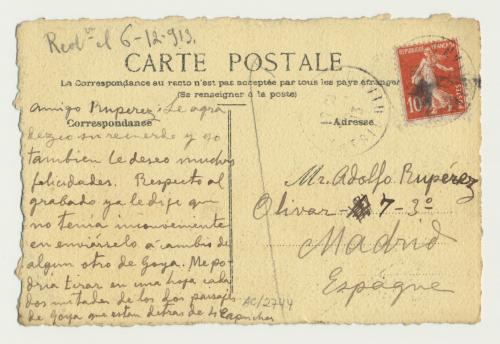 Recd. el 6-12-913.
CARTE POSTALE
La Correspondance au recto n'est pas acceptée par tous les pays étrangers
(Se renseigner à la poste)
Correspondance
Adresse
RÉPUBLIQUE FRANÇAISE
10c
POSTES
Amigo Rupérez: Le agra
dezco su recuerdo y yo
tambien le deseo muchas
felicidades. Respecto al
grabado ya le dije que
no tenia inconveniente
en enviárselo á cambio de
algun otro de Goya. Me po-
dria tirar en una hoja cada
dos mitades de los dos paisajes
de Goya que estan detras de 4 Caprichos
Mr. Adolfo Rupérez
Olivar 7-3º
Madrid
Espagne
AC/2744